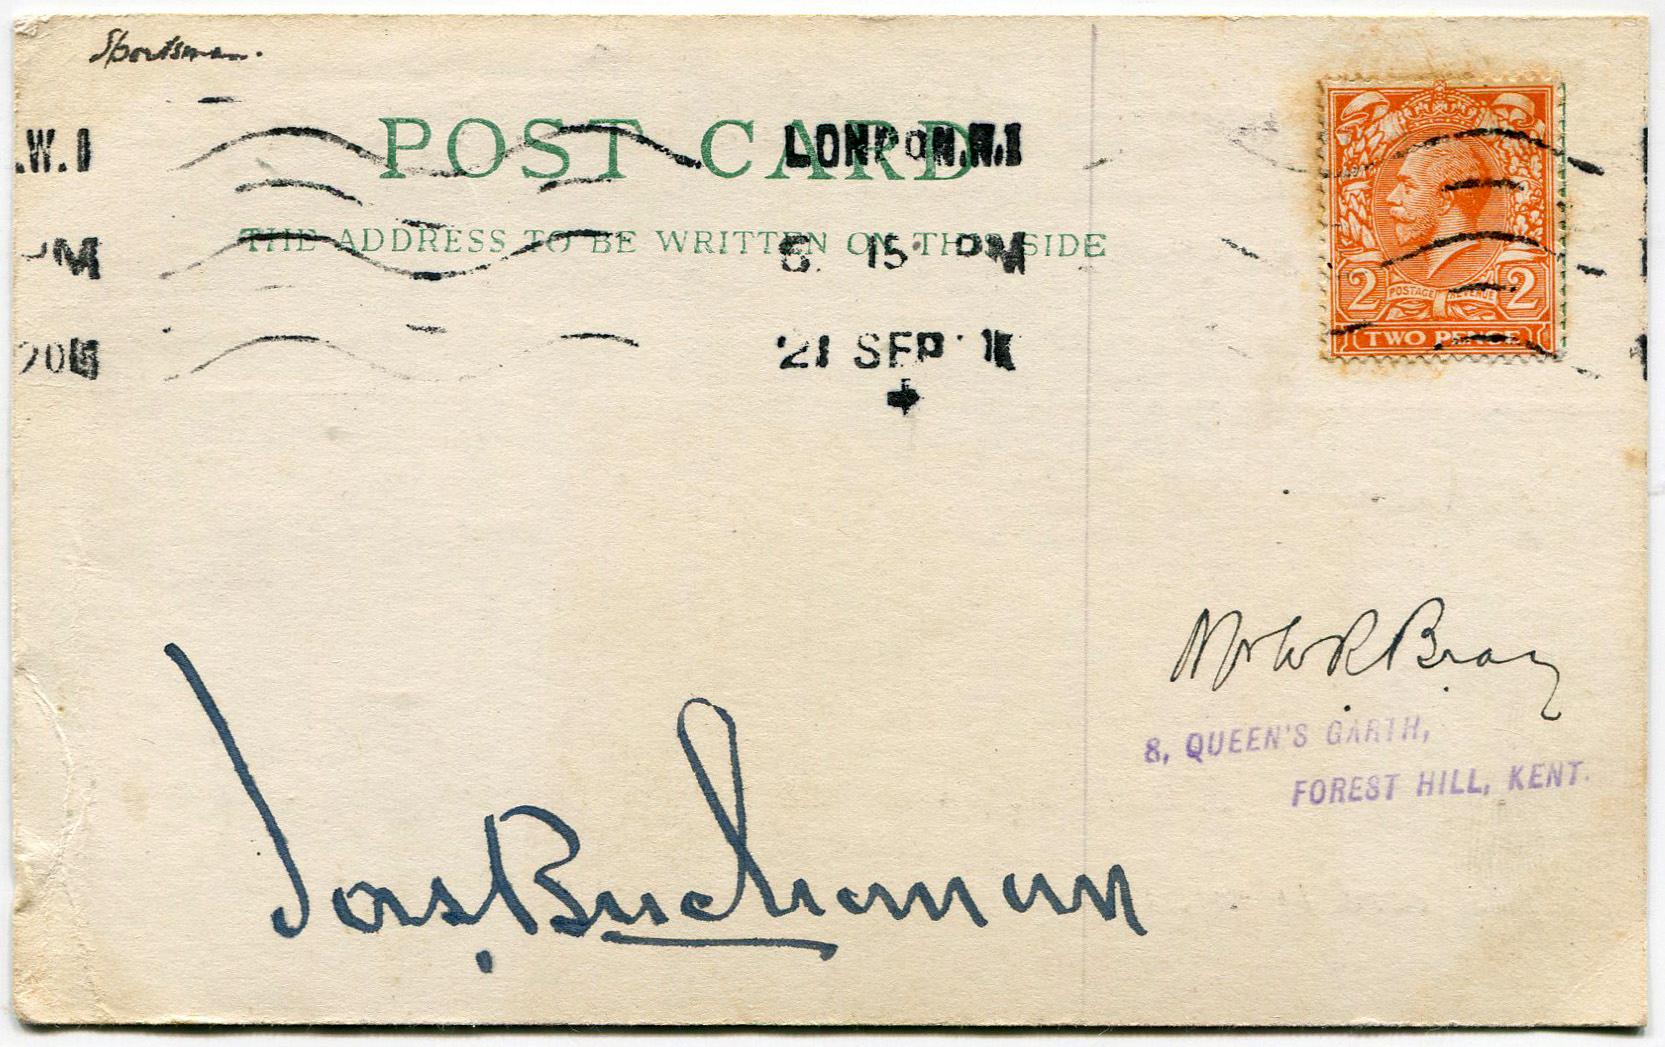 Sportsman.
POST CARD
THE ADDRESS TO BE WRITTEN ON THIS SIDE
.W.1
PM
LONDON.N.1
8. 15 PM
21 SEP
POSTAGE REVENUE
2 2
TWO PENCE
Mr W R Bray
8, QUEEN'S GARTH,
FOREST HILL, KENT.
Jas. Buchanan